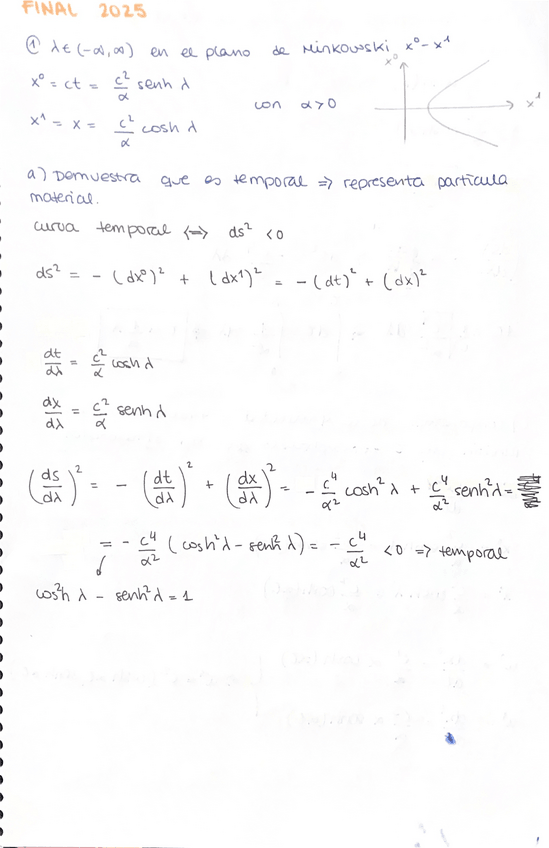 FINAL 2025
① λ∈(-∞,∞) en el plano de Minkowski x⁰-x¹
x⁰
x⁰ = ct = c²/α senh λ
con α>0
x¹
x¹ = x = c²/α cosh λ
a) Demuestra que es temporal ⇒ representa partícula
material.
curva temporal ⟺ ds² < 0
ds² = - (dx⁰)² + (dx¹)² = - (dt)² + (dx)²
dt/dλ = c²/α cosh λ
dx/dλ = c²/α senh λ
(ds/dλ)² = - (dt/dλ)² + (dx/dλ)² = - c⁴/α² cosh² λ + c⁴/α² senh² λ =
= - c⁴/α² (cosh² λ - senh² λ) = - c⁴/α² < 0 ⇒ temporal
cos²h λ - senh² λ = 1